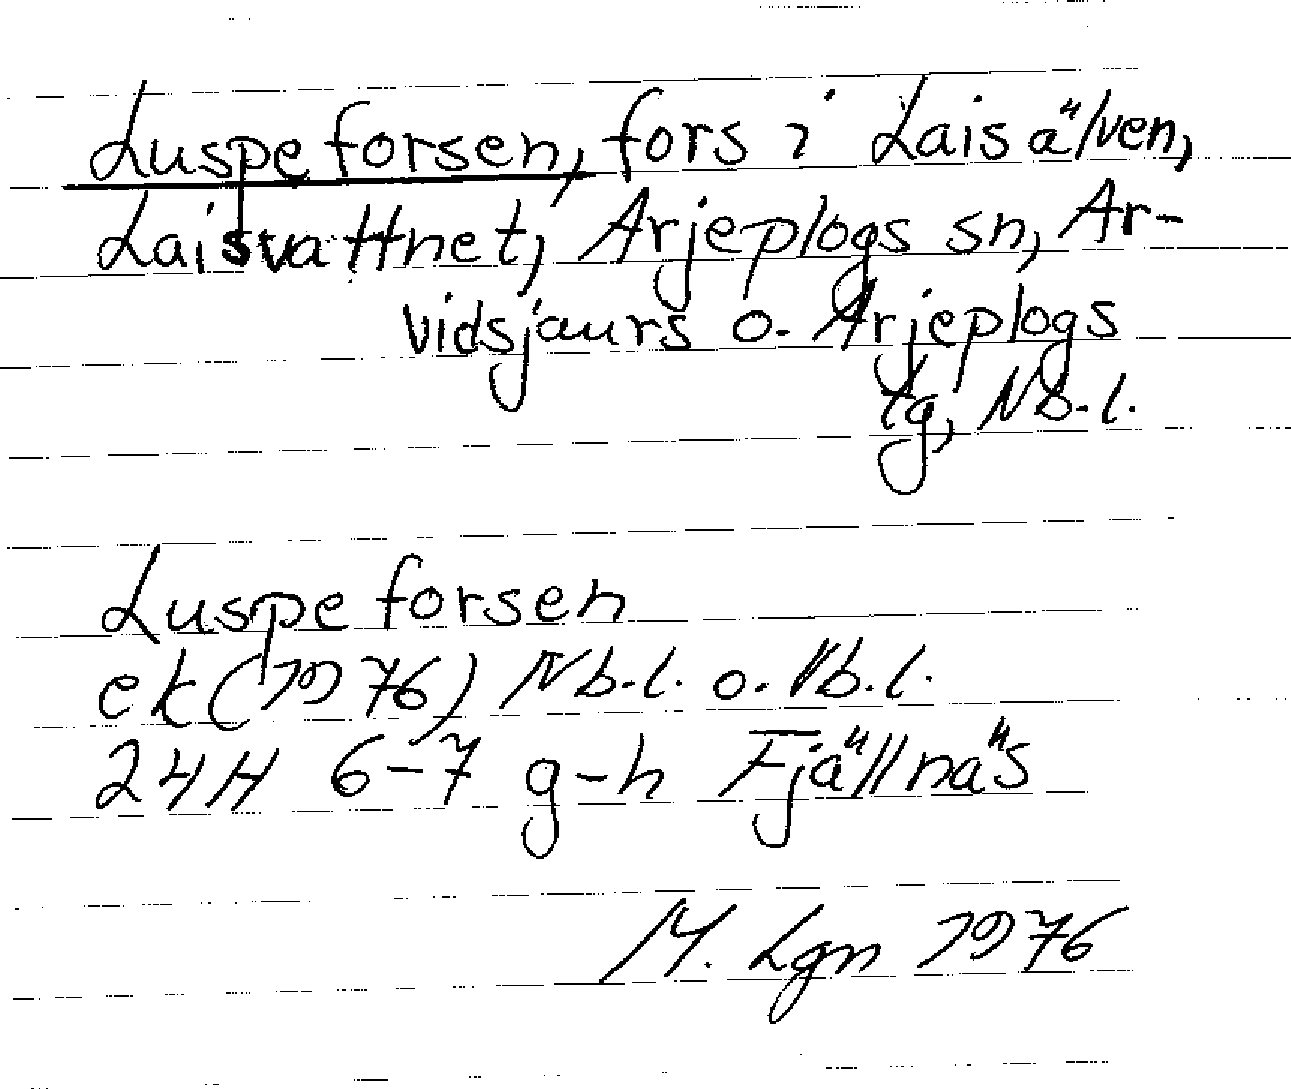 Luspeforsen, fors i Laisälven,
Laisvattnet, Arjeplogs sn, Ar-
vidsjaurs o. Arjeplogs
tg, Nb.l.
Luspeforsen
ek (1976) Nb.l. o. Vb.l.
24H 6-7 g-h Fjällnäs
M. Lgn 1976